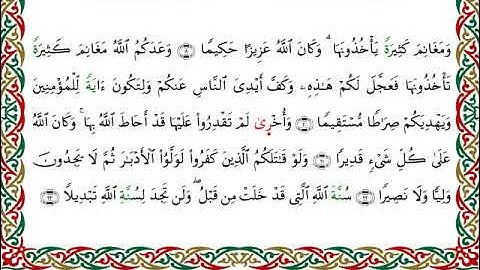 وَمَغَانِمَ كَثِيرَةً يَأْخُذُونَهَا ۗ وَكَانَ ٱللَّهُ عَزِيزًا حَكِيمًا وَعَدَكُمُ ٱللَّهُ مَغَانِمَ كَثِيرَةً
تَأْخُذُونَهَا فَعَجَّلَ لَكُمْ هَـٰذِهِۦ وَكَفَّ أَيْدِىَ ٱلنَّاسِ عَنكُمْ وَلِتَكُونَ ءَايَةً لِّلْمُؤْمِنِينَ
وَيَهْدِيَكُمْ صِرَٰطًا مُّسْتَقِيمًا وَأُخْرَىٰ لَمْ تَقْدِرُوا۟ عَلَيْهَا قَدْ أَحَاطَ ٱللَّهُ بِهَا ۚ وَكَانَ ٱللَّهُ
عَلَىٰ كُلِّ شَىْءٍ قَدِيرًا وَلَوْ قَـٰتَلَكُمُ ٱلَّذِينَ كَفَرُوا۟ لَوَلَّوُا۟ ٱلْأَدْبَـٰرَ ثُمَّ لَا يَجِدُونَ
وَلِيًّا وَلَا نَصِيرًا سُنَّةَ ٱللَّهِ ٱلَّتِى قَدْ خَلَتْ مِن قَبْلُ ۖ وَلَن تَجِدَ لِسُنَّةِ ٱللَّهِ تَبْدِيلًا